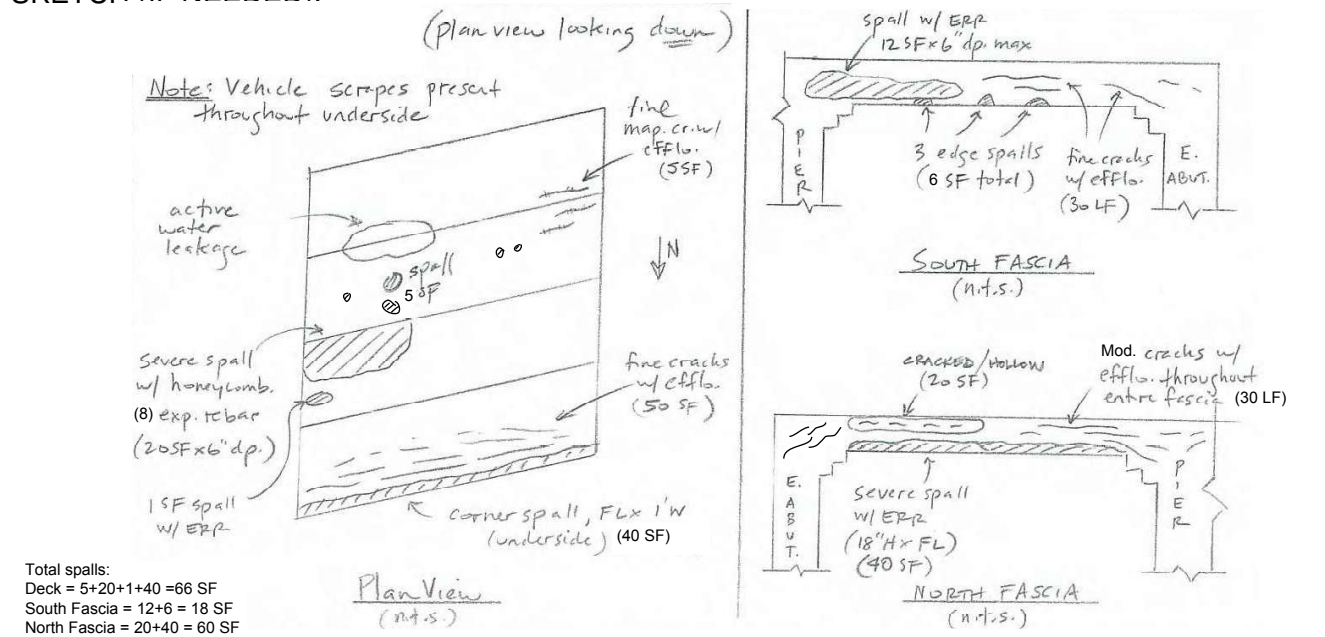 (plan view looking down)
Note: Vehicle scrapes present
throughout underside
fine
map cr. w/
efflo.
(5SF)
active
water
leakage
spall
5 SF
N
Severe spall
w/ honeycomb.
(8) exp. rebar
(20SF x 6" dp.)
1 SF spall
w/ ERR
fine cracks
w/ efflo.
(50 SF)
corner spall, FL x 1'W
(underside) (40 SF)
Plan View
(n.t.s.)
Total spalls:
Deck = 5+20+1+40 =66 SF
South Fascia = 12+6 = 18 SF
North Fascia = 20+40 = 60 SF
spall w/ ERR
12 SF x 6" dp. max
PIER
3 edge spalls
(6 SF total)
fine cracks
w/ efflo.
(30 LF)
E.
ABUT.
SOUTH FASCIA
(n.t.s.)
CRACKED/HOLLOW
(20 SF)
Mod. cracks w/
efflo. throughout
entire fascia (30 LF)
E.
ABUT.
Severe spall
w/ ERR
(18"H x FL)
(40 SF)
PIER
NORTH FASCIA
(n.t.s.)